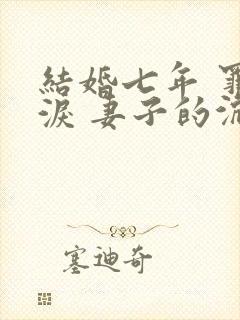 結婚七年
淚 妻子的
塞迪奇